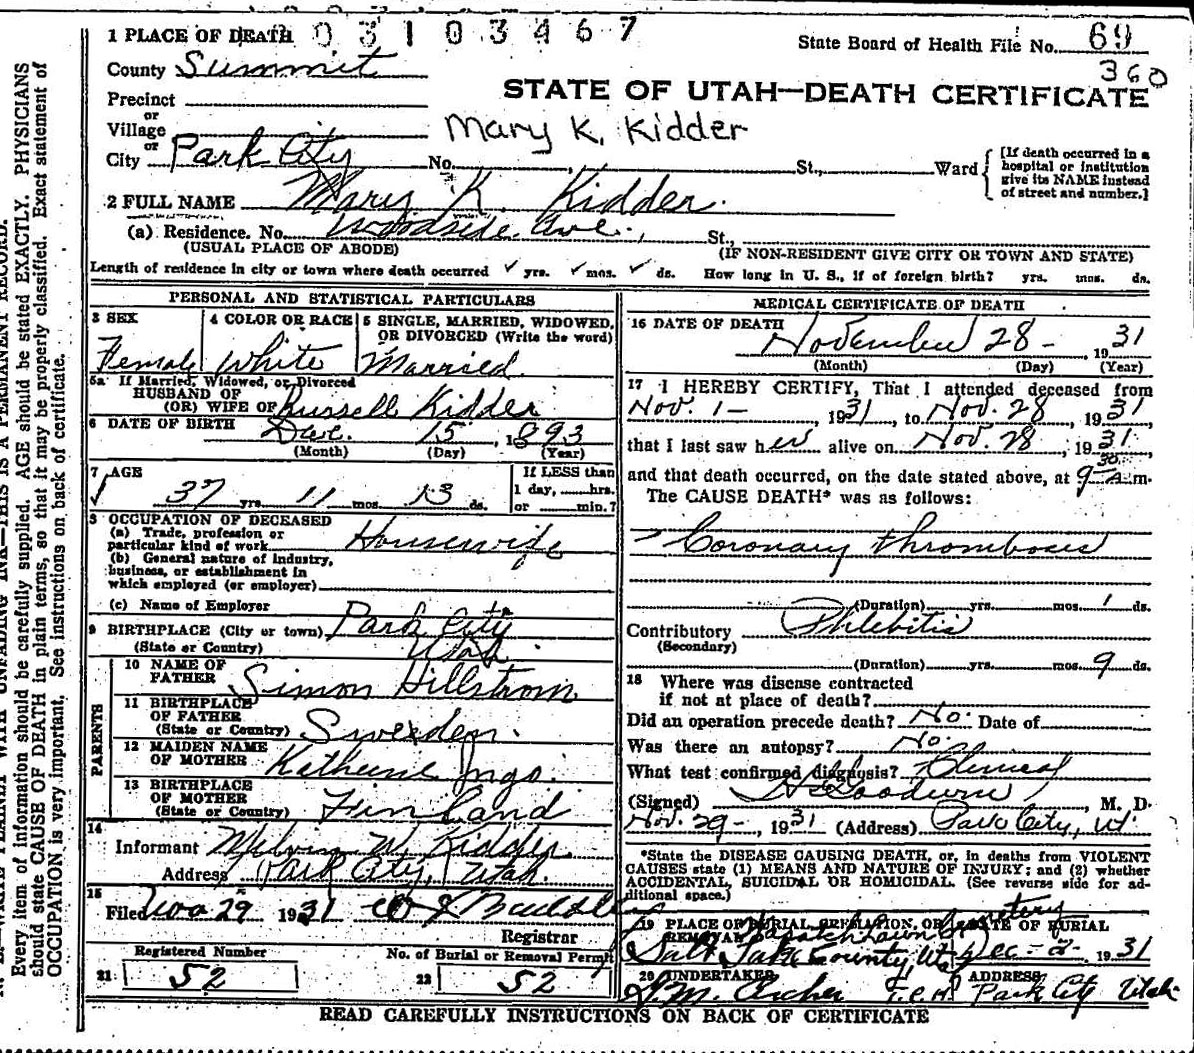 1 PLACE OF DEATH 03103467
State Board of Health File No. 69
360
County Summit
STATE OF UTAH—DEATH CERTIFICATE
Precinct
or
Village
Mary K. Kidder
or
City Park City No. St., Ward
[If death occurred in a
hospital or institution
give its NAME instead
of street and number.]
2 FULL NAME Mary K. Kidder.
(a) Residence. No. Woodside Ave., St.,
(USUAL PLACE OF ABODE) (IF NON-RESIDENT GIVE CITY OR TOWN AND STATE)
Length of residence in city or town where death occurred ✓ yrs. ✓ mos. ✓ ds. How long in U. S., if of foreign birth? yrs. mos. ds.
PERSONAL AND STATISTICAL PARTICULARS
3 SEX 4 COLOR OR RACE 5 SINGLE, MARRIED, WIDOWED,
OR DIVORCED (Write the word)
Female White Married
5a If Married, Widowed, or Divorced
HUSBAND OF
(OR) WIFE OF Russell Kidder
6 DATE OF BIRTH Dec. 15, 1893
(Month) (Day) (Year)
7 AGE If LESS than
37 yrs. 11 mos. 13 ds. 1 day, hrs.
or min.?
8 OCCUPATION OF DECEASED
(a) Trade, profession or
particular kind of work Housewife
(b) General nature of industry,
business, or establishment in
which employed (or employer)
(c) Name of Employer
9 BIRTHPLACE (City or town) Park City
(State or Country) Utah.
PARENTS
10 NAME OF
FATHER Simon Hillstrom
11 BIRTHPLACE
OF FATHER
(State or Country) Sweden.
12 MAIDEN NAME
OF MOTHER Katherine Ingo.
13 BIRTHPLACE
OF MOTHER
(State or Country) Finland
14
Informant Melvin W. Kidder
Address Park City, Utah.
15
Filed Nov 29 1931
Registrar
Registered Number No. of Burial or Removal Permit
21 52 22 52
MEDICAL CERTIFICATE OF DEATH
16 DATE OF DEATH November 28 - , 1931
(Month) (Day) (Year)
17 I HEREBY CERTIFY, That I attended deceased from
Nov. 1 - 1931, to Nov. 28 1931
that I last saw her alive on Nov. 28, 1931
and that death occurred, on the date stated above, at 9 30 A.m.
The CAUSE DEATH* was as follows:
Coronary thrombosis
(Duration) yrs. mos. 1 ds.
Contributory Phlebitis
(Secondary)
(Duration) yrs. mos 9 ds.
18 Where was disease contracted
if not at place of death?
Did an operation precede death? No. Date of
Was there an autopsy? No.
What test confirmed diagnosis? Clinical
(Signed) Goodwin, M. D.
Nov. 29 -, 1931 (Address) Park City, Ut.
*State the DISEASE CAUSING DEATH, or, in deaths from VIOLENT
CAUSES state (1) MEANS AND NATURE OF INJURY; and (2) whether
ACCIDENTAL, SUICIDAL OR HOMICIDAL. (See reverse side for ad-
ditional space.)
19 PLACE OF BURIAL, CREMATION, OR REMOVAL DATE OF BURIAL
Wasatch Lawn Cemetery
Salt Lake County, Utah Dec - 2 - 1931
20 UNDERTAKER ADDRESS
Archer Park City Utah
READ CAREFULLY INSTRUCTIONS ON BACK OF CERTIFICATE
WRITE PLAINLY WITH UNFADING INK—THIS IS A PERMANENT RECORD.
Every item of information should be carefully supplied. AGE should be stated EXACTLY. PHYSICIANS
should state CAUSE OF DEATH in plain terms, so that it may be properly classified. Exact statement of
OCCUPATION is very important. See instructions on back of certificate.